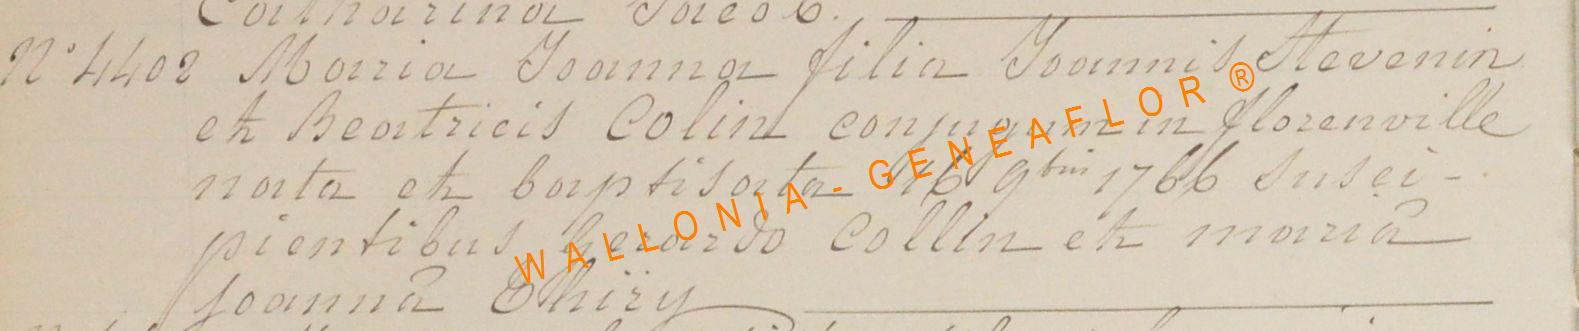 Catharina Jacob.
N° 4402 Maria Joanna filia Joannis Stevenin
et Beatricis Colin conjugum in florenville
nata et baptisata 16 9bris 1766 susci-
pientibus Gerardo Collin et mariâ
joannâ Thiry
WALLONIA - GENEAFLOR ®